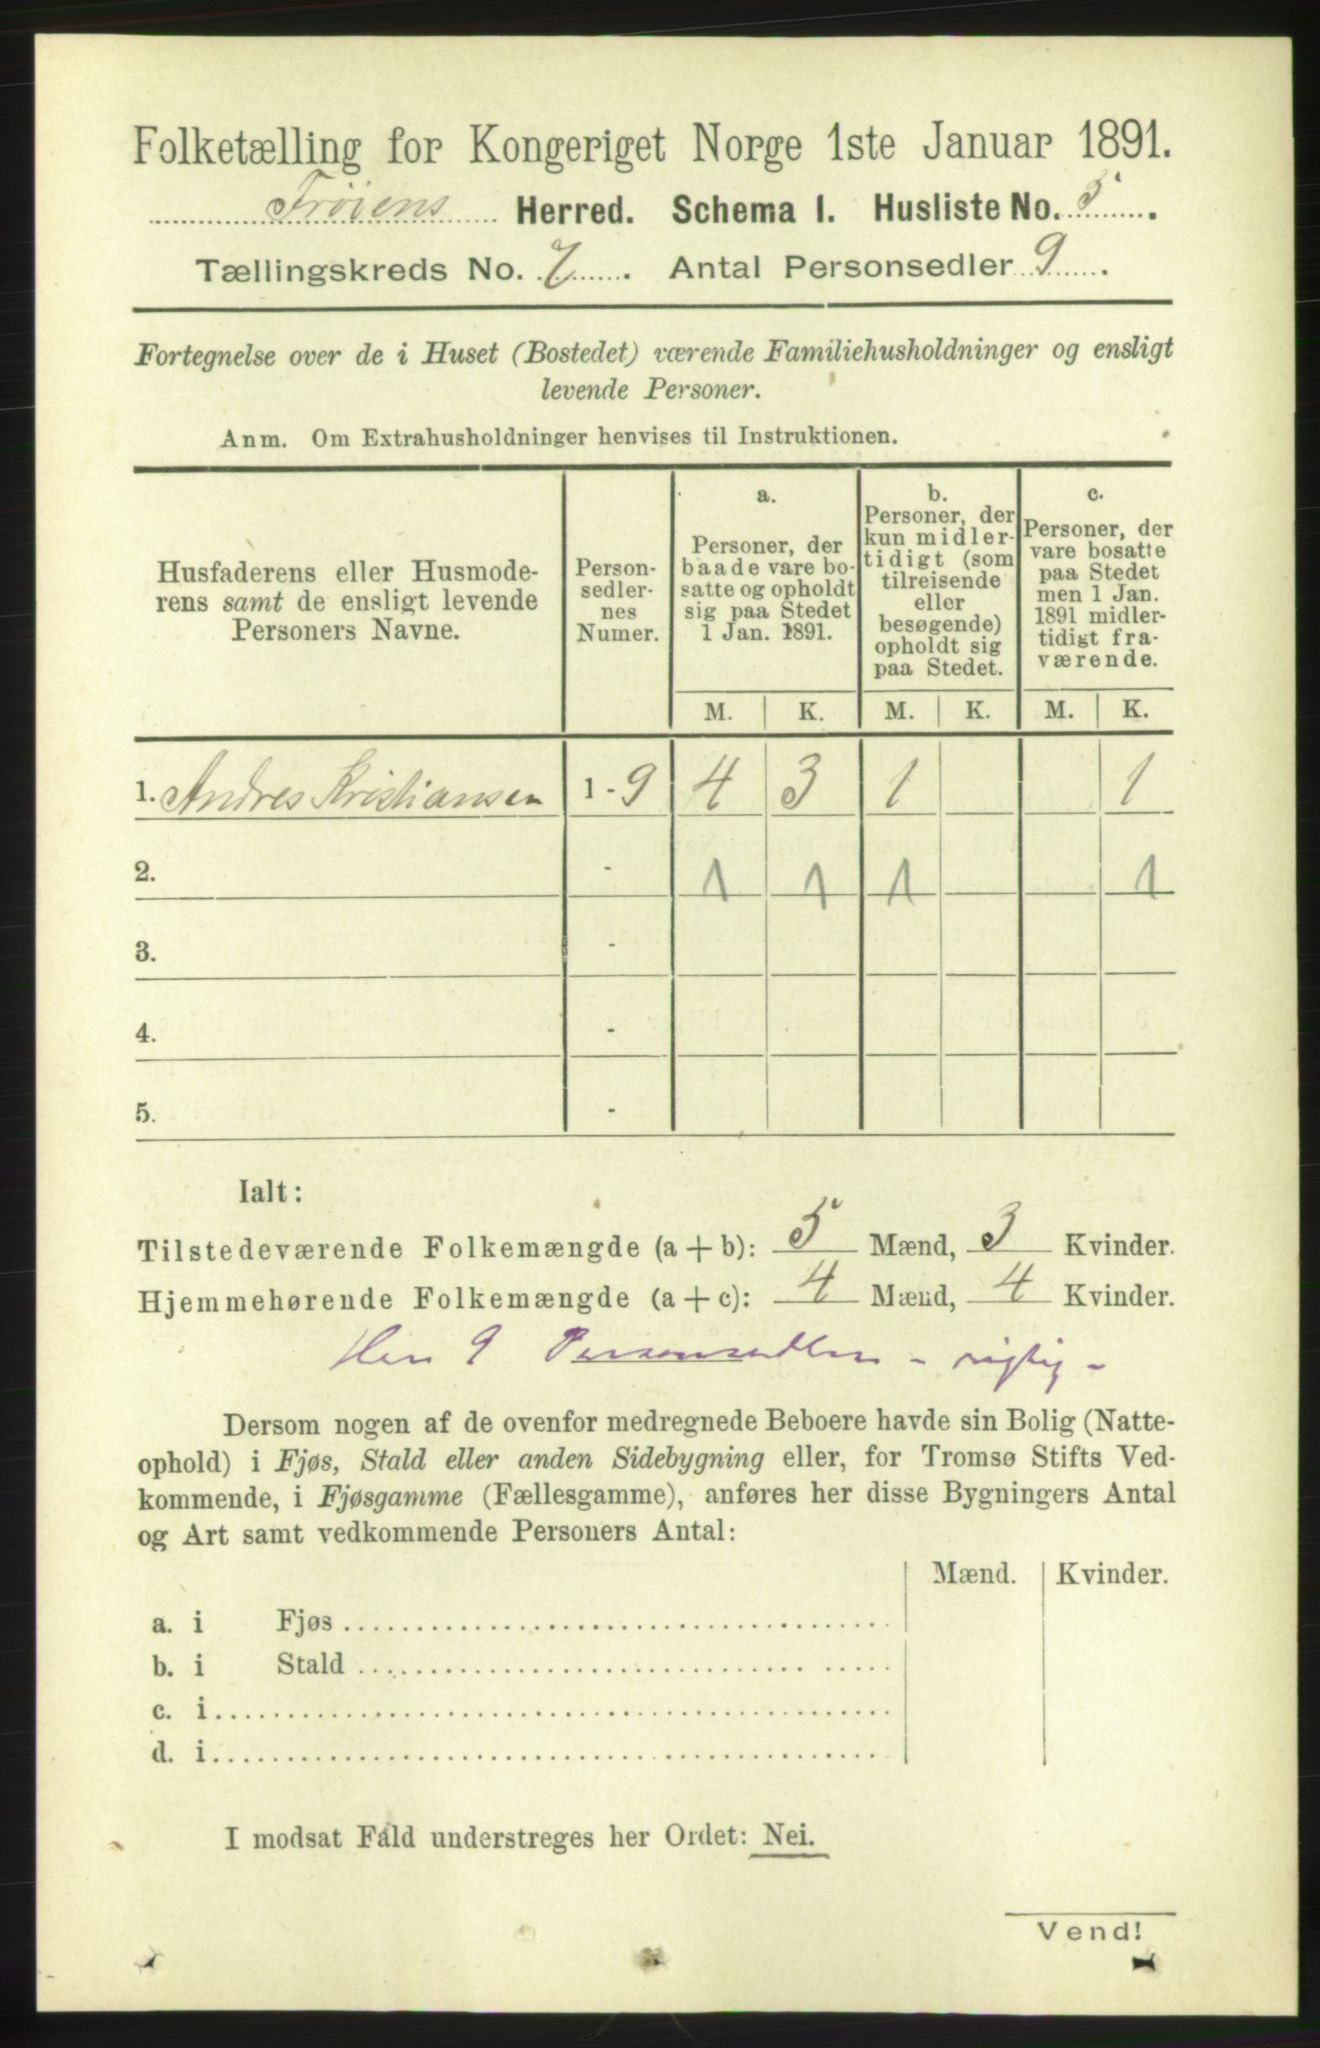 Folketælling for Kongeriget Norge 1ste Januar 1891.
Frøiens Herred. Schema I. Husliste No. 5.
Tællingskreds No. 7. Antal Personsedler 9.
Fortegnelse over de i Huset (Bostedet) værende Familiehusholdninger og ensligt
levende Personer.
Anm. Om Extrahusholdninger henvises til Instruktionen.
Husfaderens eller Husmode-
rens samt de ensligt levende
Personers Navne.
Person-
sedler-
nes
Numer.
a.
Personer, der
baade vare bo-
satte og opholdt
sig paa Stedet
1 Jan. 1891.
b.
Personer, der
kun midler-
tidigt (som
tilreisende
eller
besøgende)
opholdt sig
paa Stedet.
c.
Personer, der
vare bosatte
paa Stedet
men 1 Jan.
1891 midler-
tidigt fra-
værende.
M. K. M. K. M. K.
1. Andres Kristiansen 1 - 9 4 3 1 1
2. - 1 1 1 1
3. -
4. -
5. -
Ialt:
Tilstedeværende Folkemængde (a + b): 5 Mænd, 3 Kvinder.
Hjemmehørende Folkemængde (a + c): 4 Mænd, 4 Kvinder.
Her 9 Personsedler - rigtig -
Dersom nogen af de ovenfor medregnede Beboere havde sin Bolig (Natte-
ophold) i Fjøs, Stald eller anden Sidebygning eller, for Tromsø Stifts Ved-
kommende, i Fjøsgamme (Fællesgamme), anføres her disse Bygningers Antal
og Art samt vedkommende Personers Antal:
Mænd. Kvinder.
a. i Fjøs
b. i Stald
c. i
d. i
I modsat Fald understreges her Ordet: Nei.
Vend!